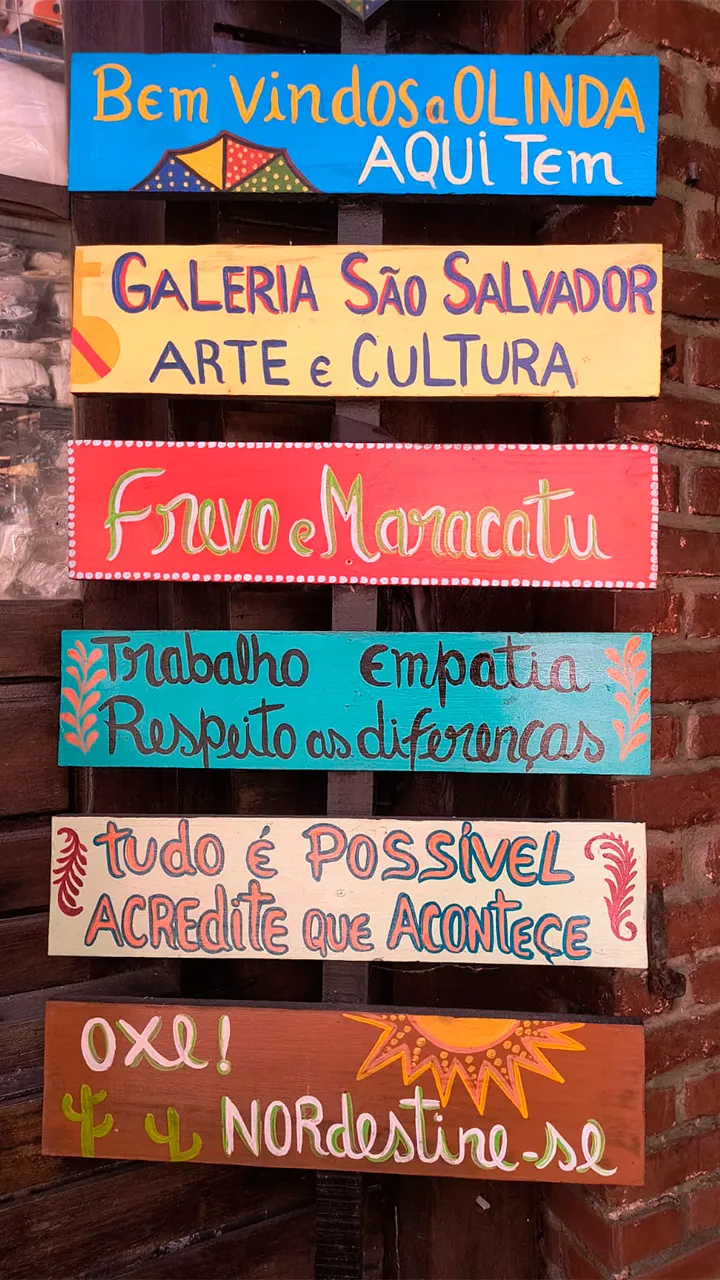 Bem vindos a OLINDA
AQUI Tem
GALERIA SÃO SALVADOR
ARTE e CULTURA
Frevo e Maracatu
Trabalho Empatia
Respeito as diferenças
tudo é POSSÍVEL
ACREdite que ACONteÇe
oxe!
NORdestine-se